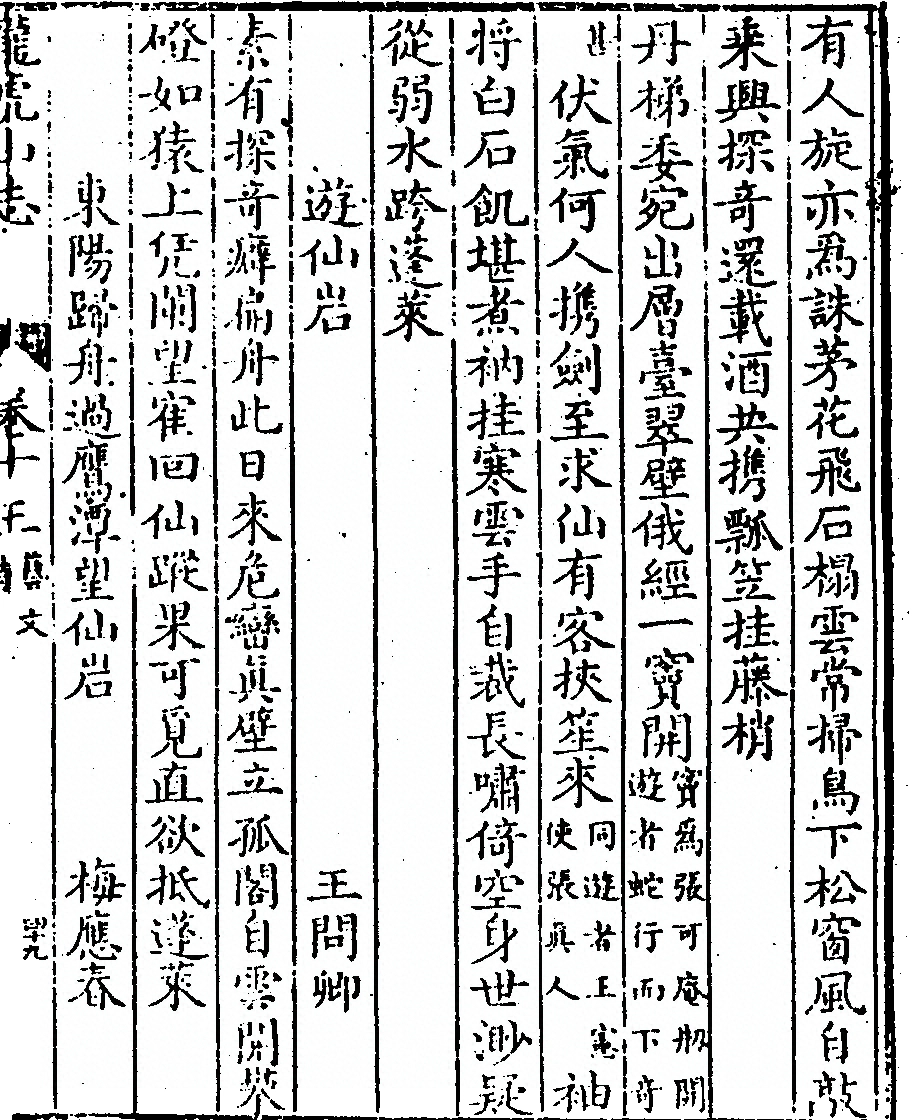 有人旋亦爲誅茅花飛石榻雲常掃鳥下松窗風自敲
乘興探奇還載酒共携瓢笠挂藤梢
丹梯委宛出層臺翠壁俄經一竇開竇爲張可庵剏開遊者蛇行而下奇
甚伏氣何人携劍至求仙有客挾笙來同遊者王憲使張眞人袖
將白石飢堪煮衲挂寒雲手自裁長嘯倚空身世渺疑
從弱水跨蓬萊
遊仙岩 王問卿
素有探奇癖扁舟此日來危巒眞壁立孤閣自雲開棊
磴如猿上凭闌望隺回仙蹤果可覓直欲抵蓬萊
東陽歸舟過鷹潭望仙岩 梅應春
龍虎山志 卷十 藝文 四十九